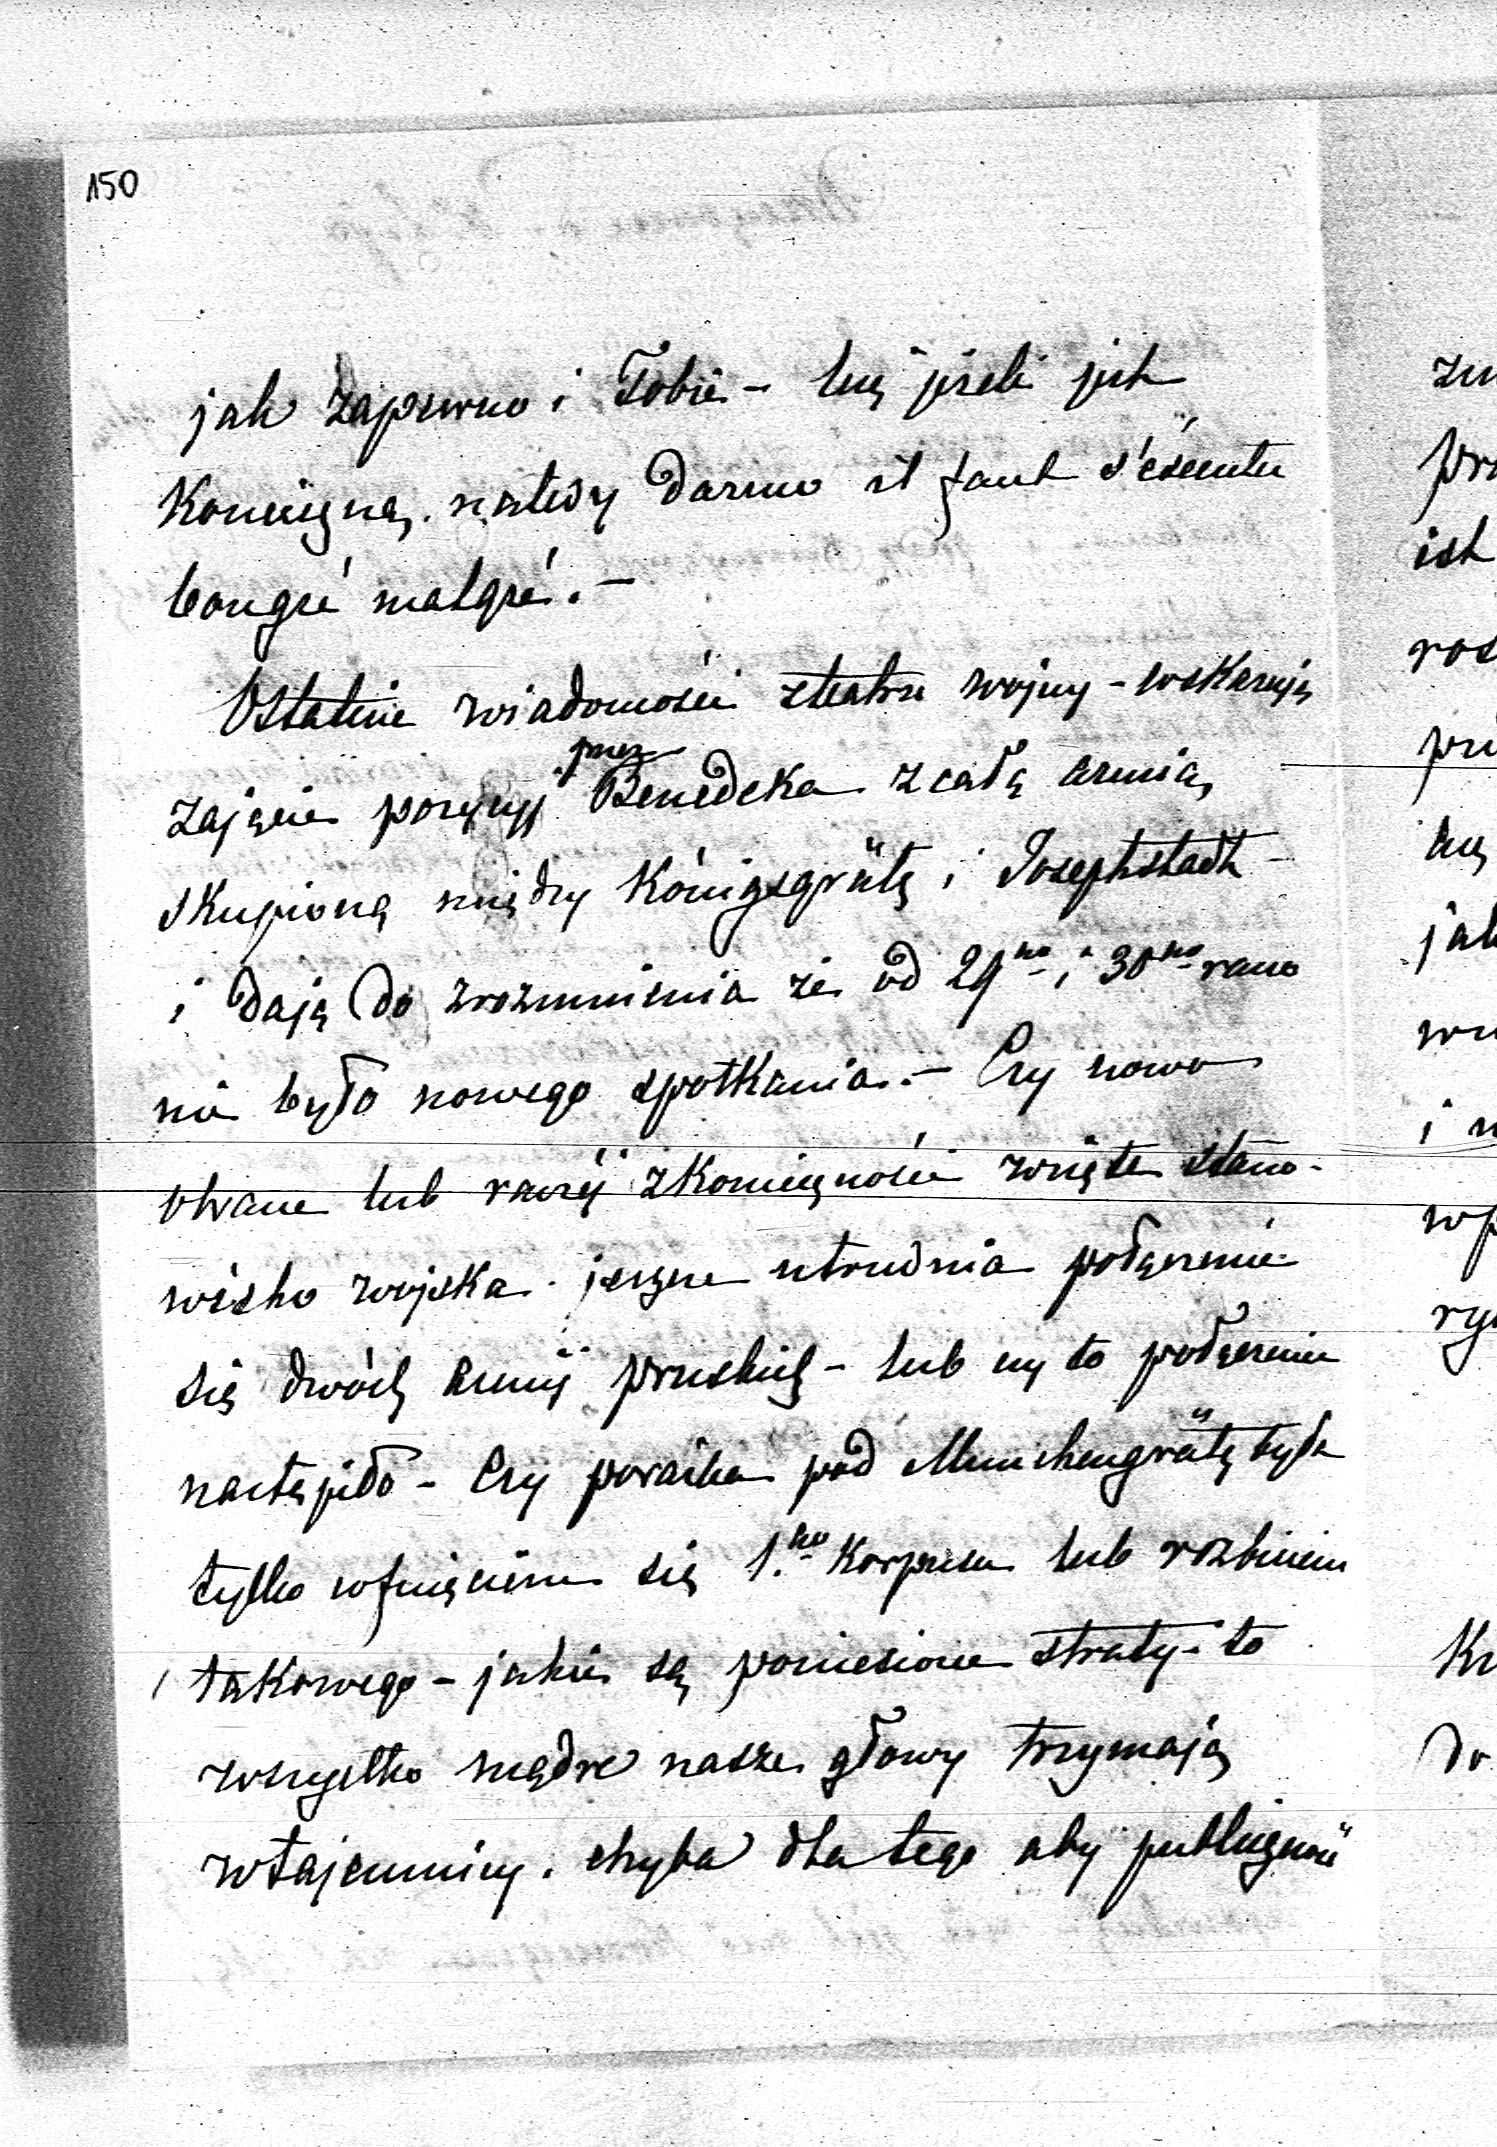 150
jak zapewno i Tobie – lecz jeżeli jest
Konieczną, natedy darmo il faut s'éxecuter
bongré malgré. –
Ostatnie wiadomości zteatru wojny – wskazują
zajęcie pozycyj przez Benedeka z całą armią
skupioną między Königsgrätz i Josephstadt –
i dają do zrozumienia że od 29no i 30no rano
nie było nowego spotkania. – Czy nowo
obrane lub raczéj zKonieczności wzięte stano-
wisko wojska jeszcze utrudnia połączenie
się dwóch armij pruskich – lub czy to połączenie
nastąpiło – Czy porażka pod Munchengrätz była
tylko cofnięciem się 1.go Korpusu lub rozbiciem
takowego – jakie są poniesione straty – to
wszystko mądre nasze głowy trzymają
wtajemnicy. chyba dla tego aby publiczność